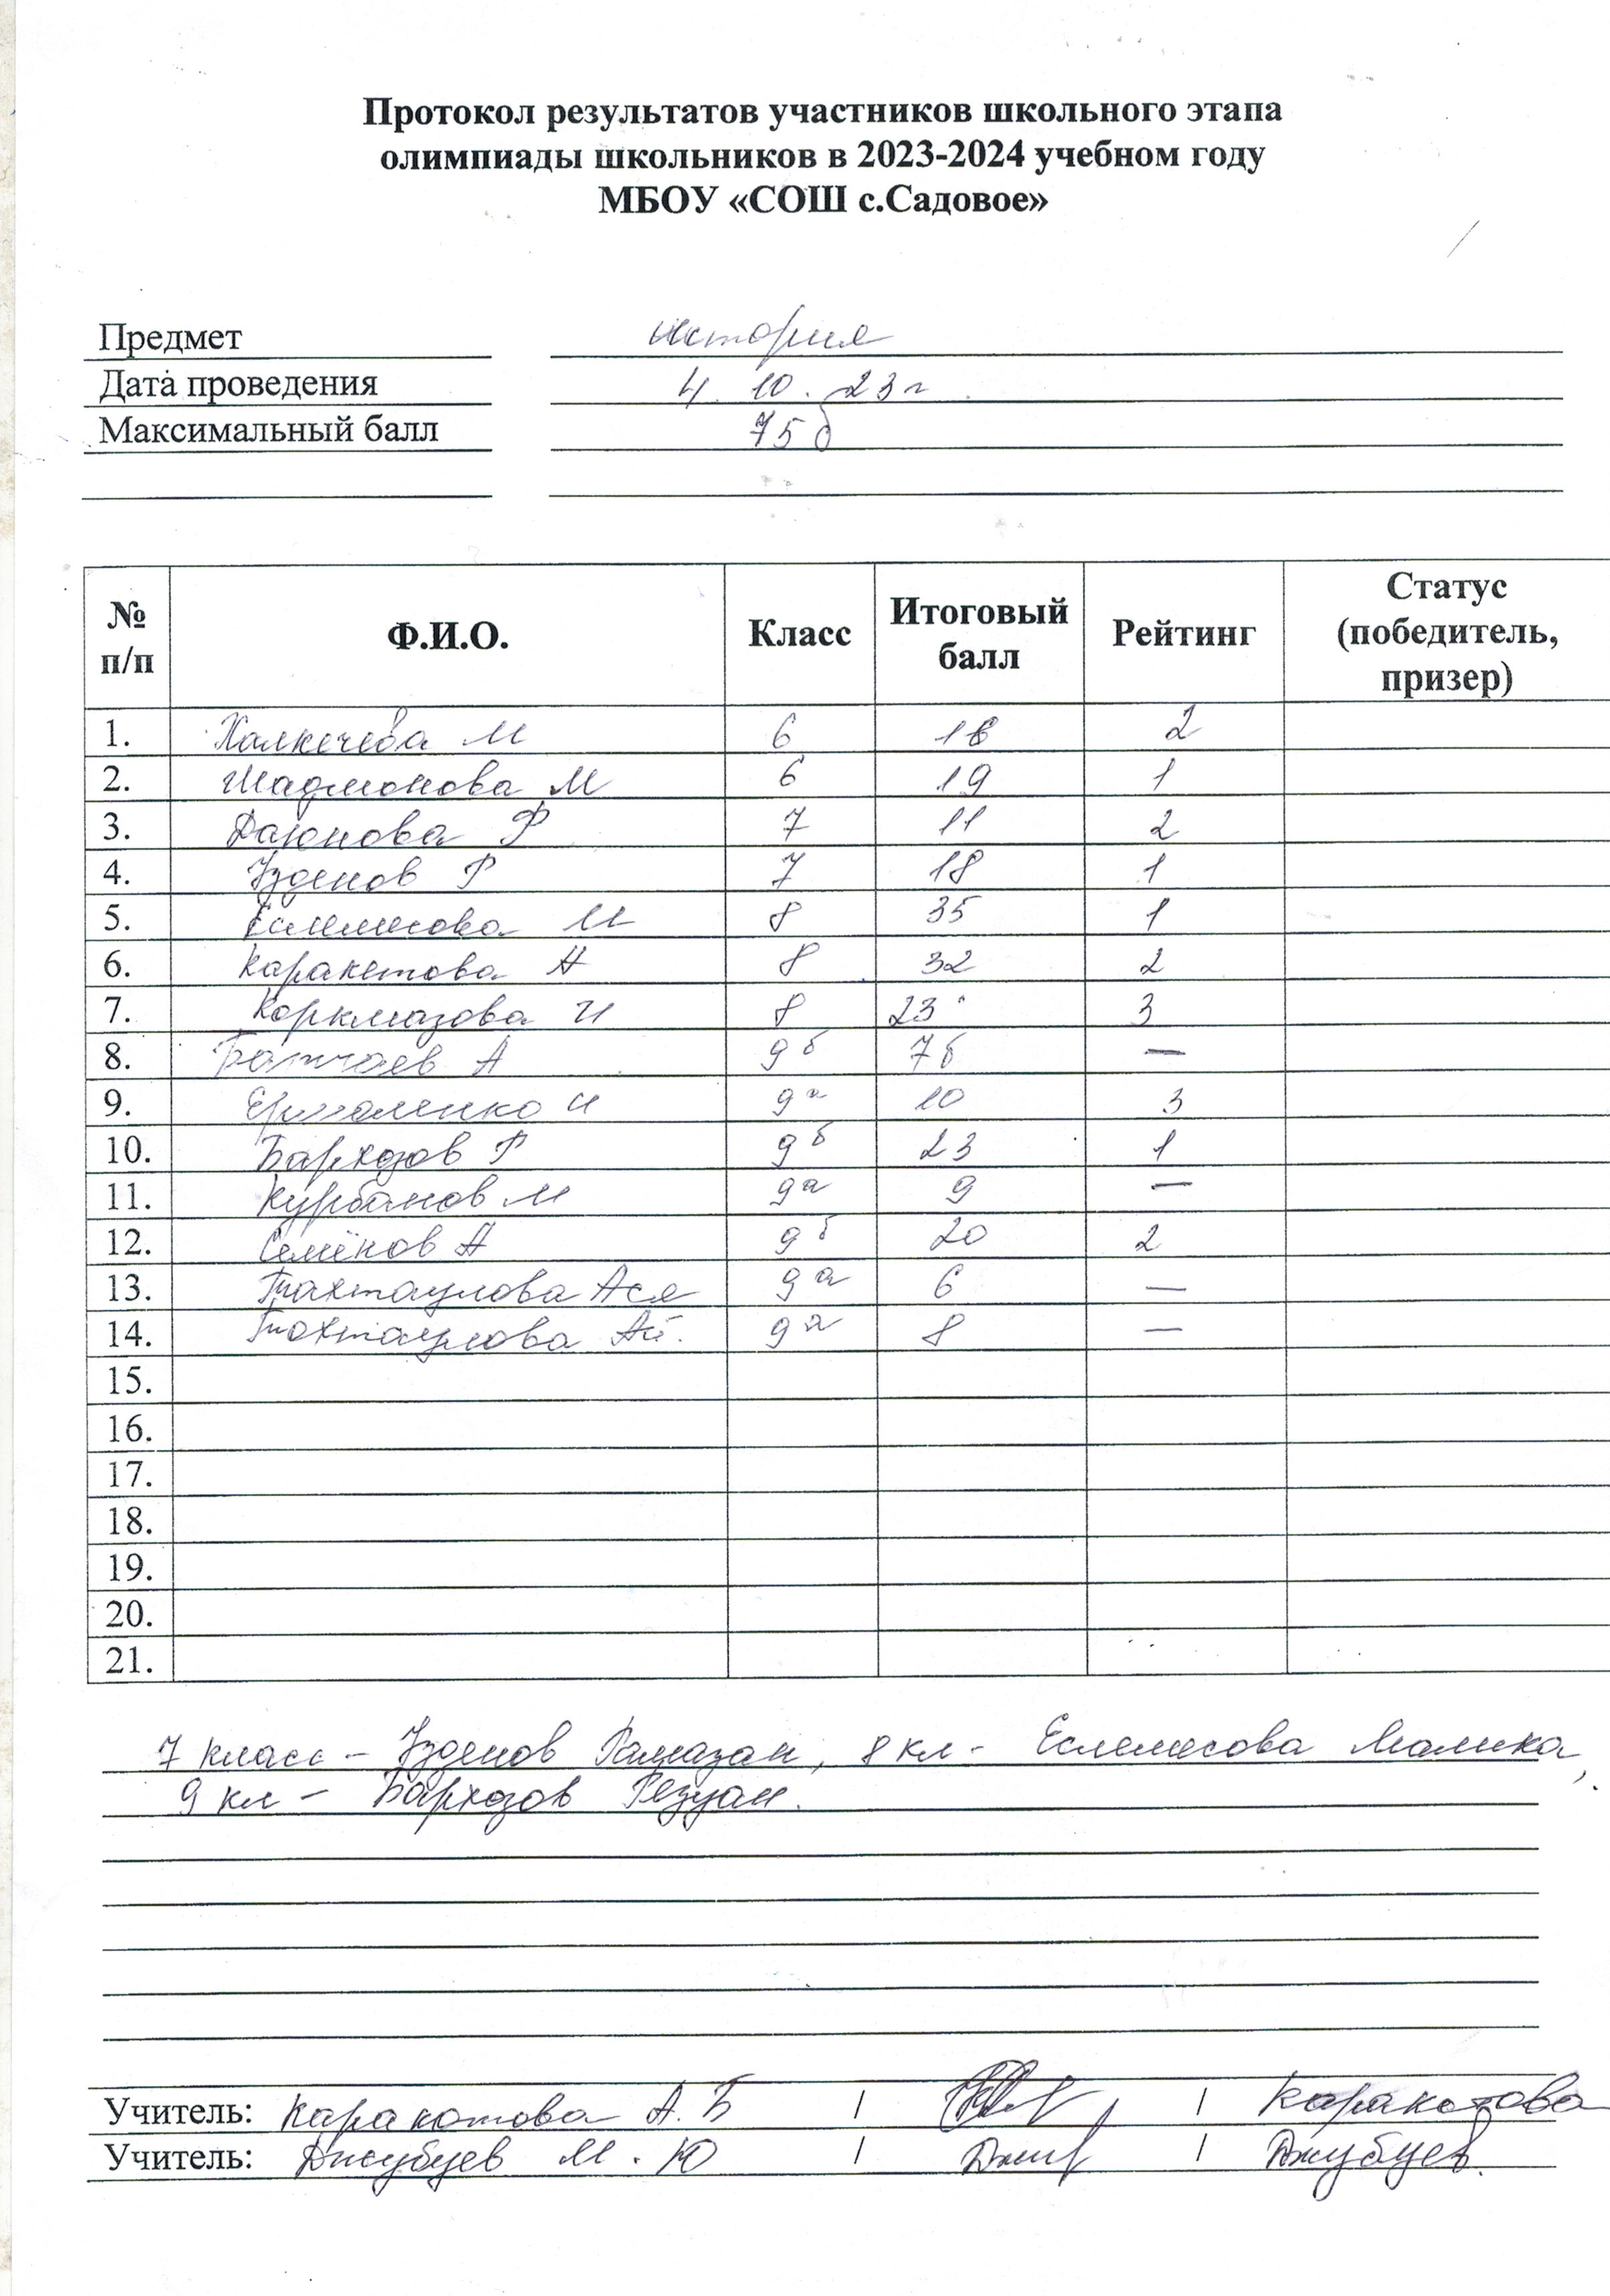 Протокол результатов участников школьного этапа
олимпиады школьников в 2023-2024 учебном году
МБОУ «СОШ с.Садовое»
Предмет история
Дата проведения 4. 10. 23г.
Максимальный балл 75б
№ п/п Ф.И.О. Класс Итоговый балл Рейтинг Статус (победитель, призер)
1. Халкечева М 6 2
2. Шадмонова М 6 19 1
3. Даюнова Ф 7 11 2
4. Узденов Р 7 18 1
5. Еслемесова М 8 35 1
6. Каракетова А 8 32 2
7. Коркмазова И 8 23 3
8. Батчаев А 9б 7б —
9. Ермоленко И 9а 10 3
10. Бархозов Р 9б 23 1
11. Курбанов М 9а 9 —
12. Семёнов А 9б 20 2
13. Тохтаулова Ася 9а 6 —
14. Тохтаулова Ай. 9а 8 —
15.
16.
17.
18.
19.
20.
21.
7 класс - Узденов Рамазан, 8 кл - Еслемесова Малика,
9 кл - Бархозов Резуан.
Учитель: Каракотова А.Б / / Каракотова
Учитель: Джубуев М.Ю / / Джубуев.